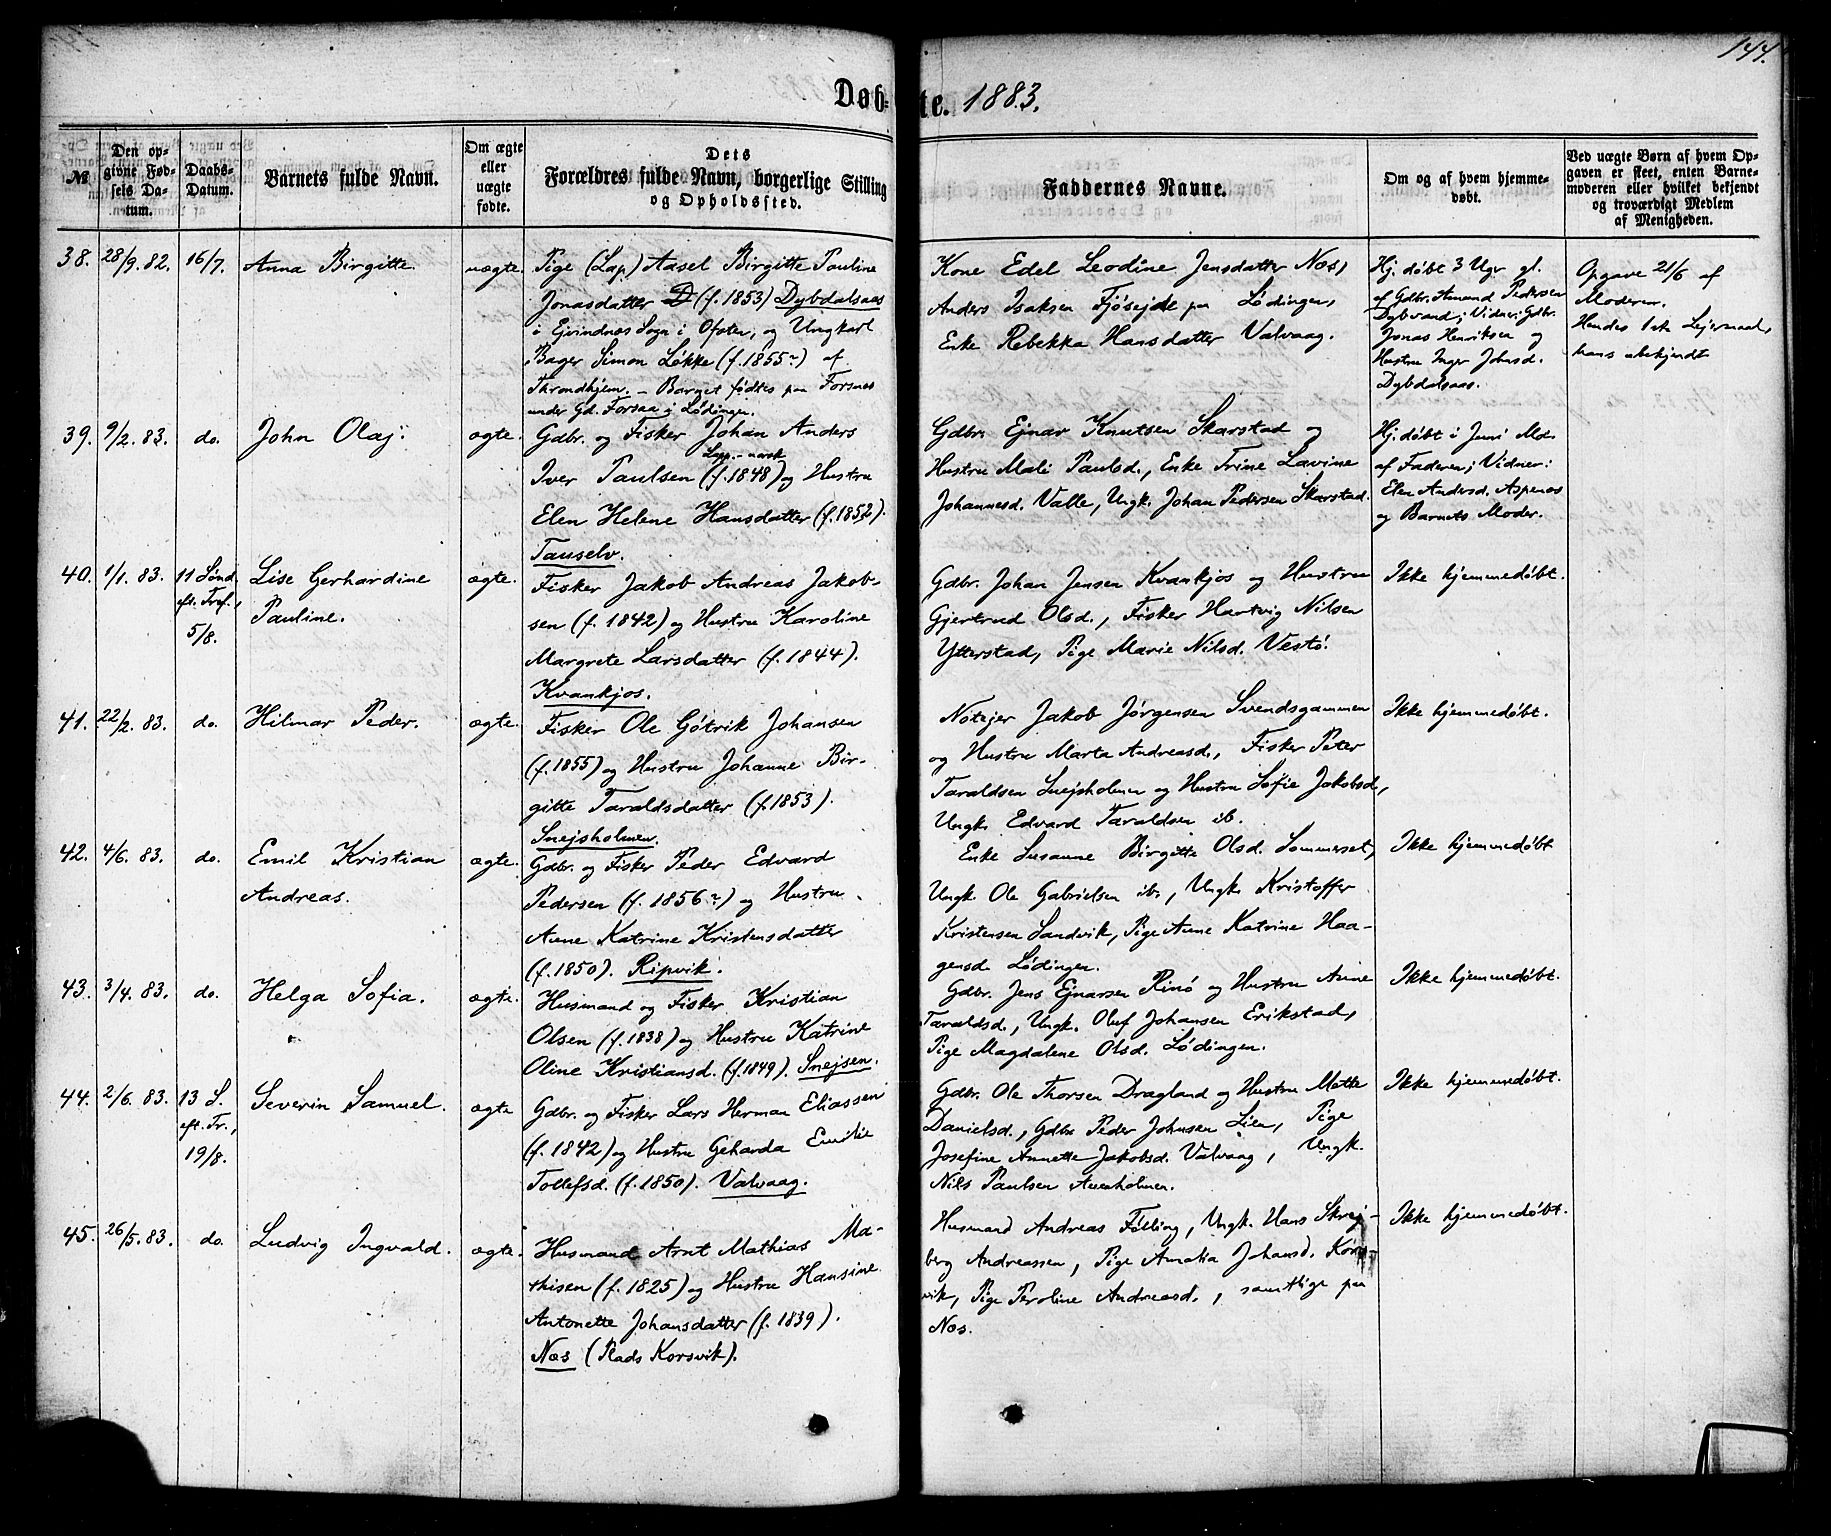 144.
Døb-te. 1883.
№
Den opgivne Fødsels Datum.
Daabs-Datum.
Barnets fulde Navn.
Om ægte eller uægte fødte.
Dets
Forældres fulde Navn, borgerlige Stilling
og Opholdssted.
Faddernes Navne.
Om og af hvem hjemmedøbt.
Ved uægte Børn af hvem Opgaven er skeet, enten Barnemoderen eller hvilket bekjendt og troværdigt Medlem af Menigheden.
38. 28/9. 82. 16/7. Anna Birgitte. uægte.
Pige (Lap) Aasel Birgitte Pauline
Jonasdatter (f. 1853) Dybdalsaas
i Ejvindnæs Sogn i Ofoten, og Ungkarl
Bager Simon Løkke (f. 1855?) af
Throndhjem. – Barnet fødtes paa Forsnes
under Gd. Forsaa i Lødingen.
Kone Edel Leodine Jensdatter Næs,
Anders Isaksen Fjøsejde paa Lødingen,
Enke Rebekka Hansdatter Valvaag.
Hj. døbt 3 Ugr gl.
af Gdbr. Amund Pedersen
Dybvand; Vidner: Gdbr.
Jonas Henriksen og
Hustru Inger Johnsd.
Dybdalsaas.
Opgave 21/6 af
Moderen.
Hendes 1ste Lejermaal,
hans ubekjendt
39. 9/2. 83. do. John Olaj. ægte.
Gdbr. og Fisker Johan Anders
Lapp.-norsk
Iver Paulsen (f. 1848) og Hustru
Elen Helene Hansdatter (f. 1852).
Tauselv.
Gdbr. Ejnar Knutsen Skarstad og
Hustru Mali Paulsd., Enke Trine Lavine
Johannesd. Valle, Ungk. Johan Pedersen Skarstad.
Hj. døbt i Juni Md.
af Faderen; Vidner:
Elen Andersd. Aspenes
og Barnets Moder.
40. 1/1. 83. 11 Sønd.
eft. Tref.,
5/8.
Lise Gerhardine
Pauline.
ægte.
Fisker Jakob Andreas Jakob-
sen (f. 1842) og Hustru Karoline
Margrete Larsdatter (f. 1844).
Kvankjos.
Gdbr. Johan Jensen Kvankjos og Hustru
Gjertrud Olsd., Fisker Hartvig Nilsen
Ytterstad, Pige Marie Nilsd. Vestø.
Ikke hjemmedøbt.
41. 22/2. 83. do. Hilmar Peder. ægte.
Fisker Ole Gøtrik Johansen
(f. 1855) og Hustru Johanne Bir-
gitte Taraldsdatter (f. 1853).
Snejsholmen.
Notejer Jakob Jørgensen Svendsgammen
og Hustru Marta Andreasd., Fisker Peter
Taraldsen Snejsholmen og Hustru Sofie Jakobsd.,
Ungk. Edvard Taraldsen ib.
Ikke hjemmedøbt.
42. 4/6. 83. do. Emil Kristian
Andreas.
ægte.
Gdbr. og Fisker Peder Edvard
Pedersen (f. 1856?) og Hustru
Anne Katrine Kristensdatter
(f. 1850). Ripvik.
Enke Susanne Birgitte Olsd. Sommerset,
Ungk. Ole Gabrielsen ib., Ungk. Kristoffer
Kristensen Sandvik, Pige Anne Katrine Haa-
gensd. Lødingen.
Ikke hjemmedøbt
43. 3/4. 83. do. Helga Sofia. ægte.
Husmand og Fisker Kristian
Olsen (f. 1838) og Hustru Katrine
Oline Kristiansd. (f. 1849). Snejsen.
Gdbr. Jens Ejnarsen Rinø og Hustru Anne
Taraldsd., Ungk. Oluf Johansen Erikstad,
Pige Magdalene Olsd. Lødingen.
Ikke hjemmedøbt.
44. 2/6. 83. 13 S.
eft. Tr.,
19/8.
Severin Samuel. ægte
Gdbr. og Fisker Lars Herman Eliassen
(f. 1842) og Hustru Geharda Emilie
Tollefsd. (f. 1850). Valvaag.
Gdbr. Ole Thorsen Dragland og Hustru Mette
Danielsd., Gdbr. Peder Johnsen Lien, Pige
Josefine Annette Jakobsd. Valvaag, Ungk.
Nils Paulsen Aneholmen.
Ikke hjemmedøbt.
45. 26/5. 83. do. Ludvig Ingvald. ægte.
Husmand Arnt Mathias Ma-
thisen (f. 1825) og Hustru Hansine
Antonette Johansdatter (f. 1839).
Næs (Plads Korsvik).
Husmand Andreas Følling, Ungk. Hans Skrej-
berg Andreassen, Pige Amalia Johansd. Kors-
vik, Pige Peroline Andreasd., samtlige paa
Næs.
Ikke hjemmedøbt.